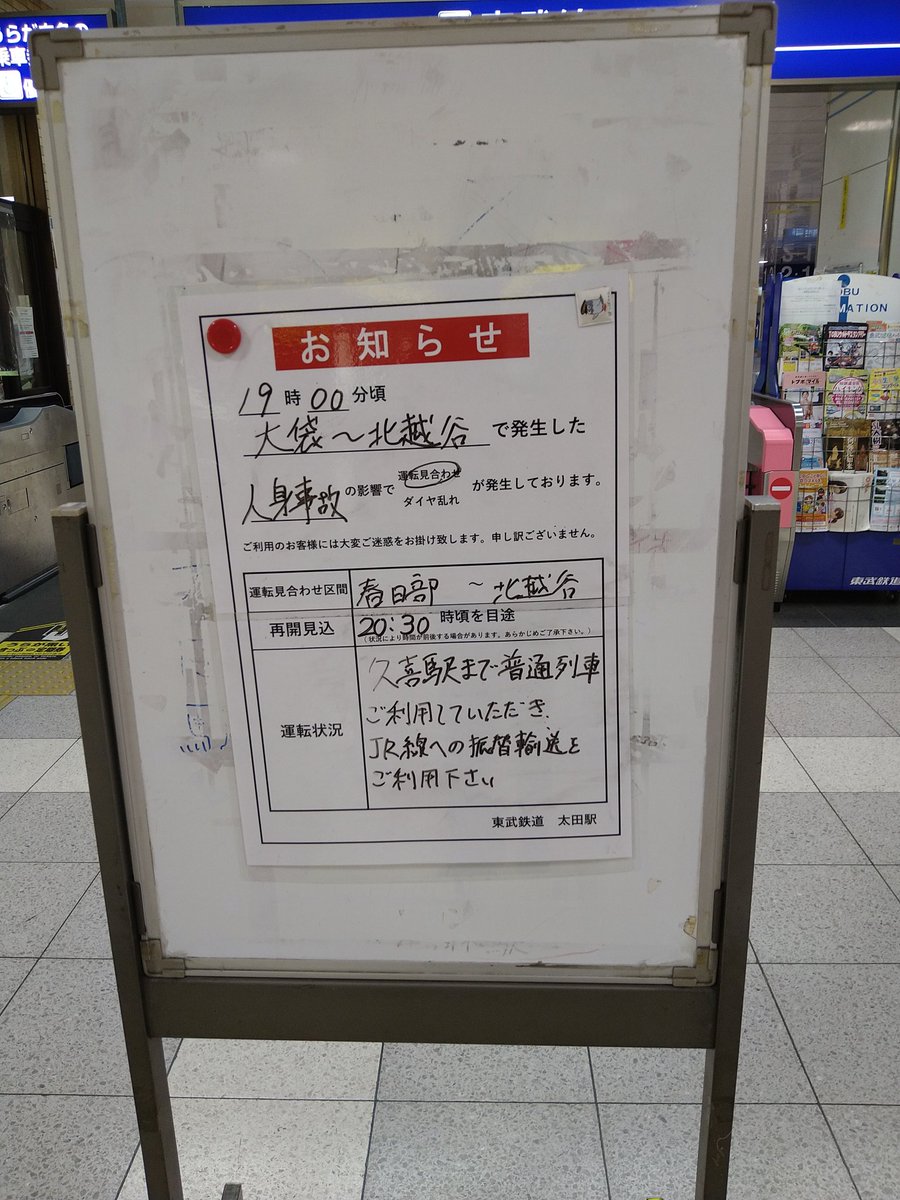 お知らせ
19時00分頃
大袋～北越谷で発生した
人身事故の影響で 運転見合わせ ダイヤ乱れ が発生しております。
ご利用のお客様には大変ご迷惑をお掛け致します。申し訳ございません。
運転見合わせ区間 春日部 ～ 北越谷
再開見込 20:30 時頃を目途
(状況により時間が前後する場合があります。あらかじめご了承下さい。)
運転状況
久喜駅まで普通列車
ご利用していただき、
JR線への振替輸送を
ご利用下さい
東武鉄道 太田駅
MATION
東武鉄道